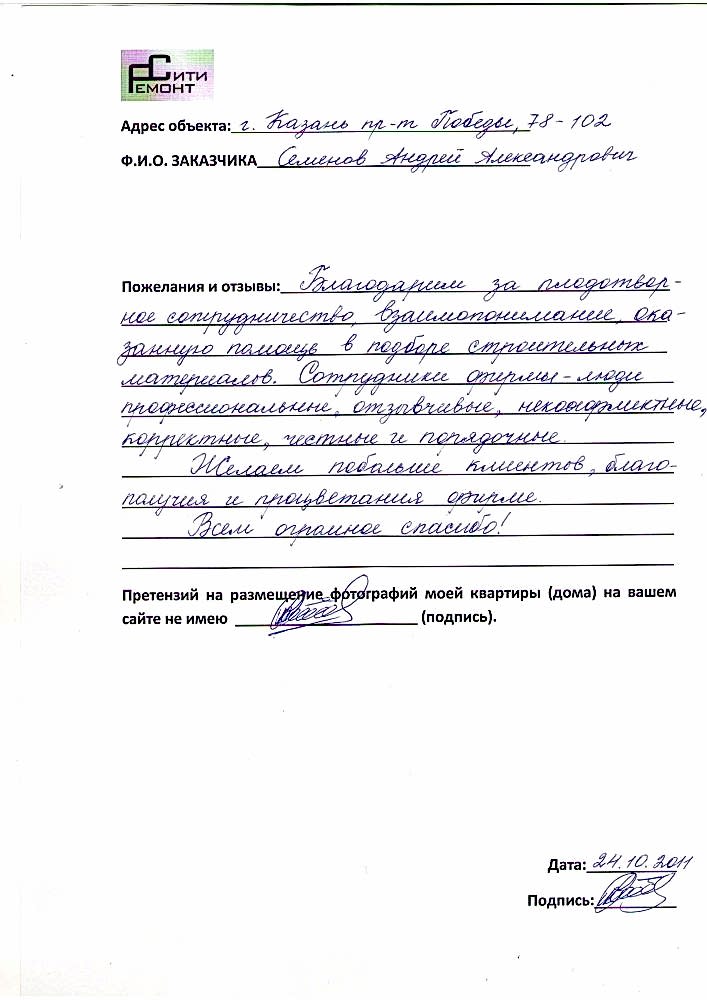 Сити
Ремонт
Адрес объекта: г. Казань пр-т Победы, 78-102
Ф.И.О. ЗАКАЗЧИКА Семенов Андрей Александрович
Пожелания и отзывы: Благодарим за плодотвор-
ное сотрудничество, взаимопонимание, ока-
занную помощь в подборе строительных
материалов. Сотрудники фирмы-люди
профессиональные, отзывчивые, неконфликтные,
корректные, честные и порядочные.
Желаем побольше клиентов, благо-
получия и процветания фирме.
Всем огромное спасибо!
Претензий на размещение фотографий моей квартиры (дома) на вашем
сайте не имею (подпись).
Дата: 24.10.2011
Подпись: